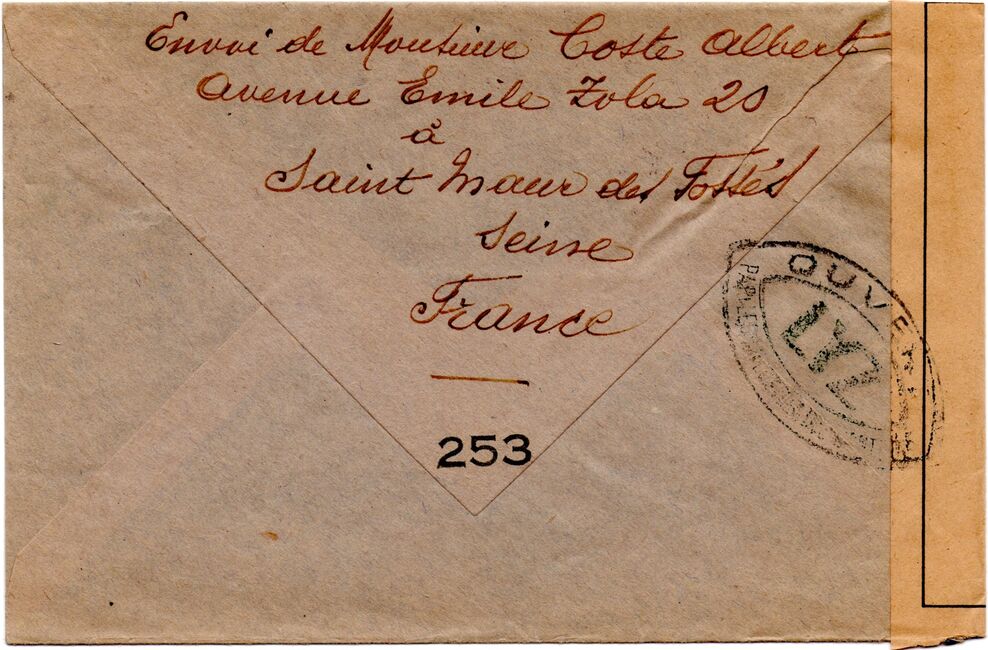 Envoi de Monsieur Coste Albert
Avenue Emile Zola 20
à
Saint Maur des Fossés
Seine
France
253
OUVERT